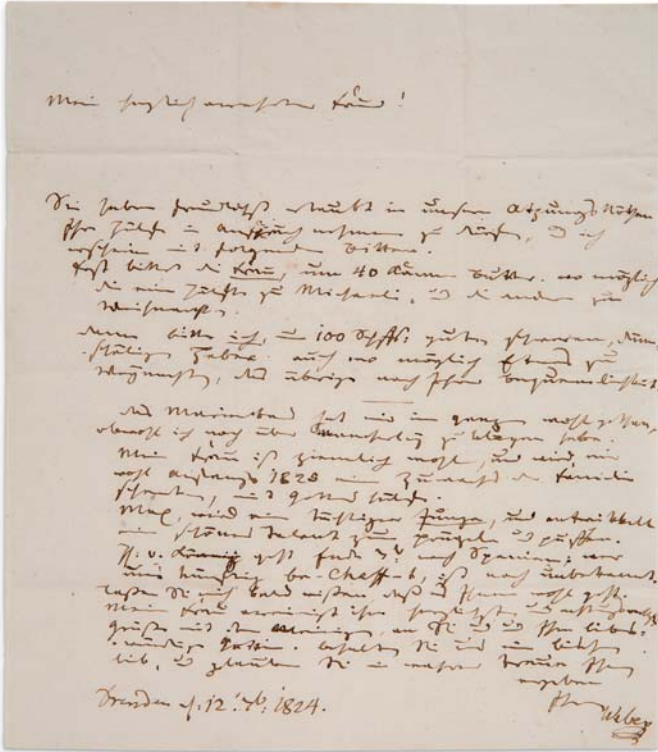 Mein herzlich verehrter Freund!
Sie haben freundlichst erlaubt in unsern Atzungs Nöthen
Ihre Hülfe in Anspruch nehmen zu dürfen, und ich
erscheine mit folgenden Bitten.
Erst bittet die Frau, um 40 Kannen Butter. wo möglich
die eine Hälfte zu Michaeli, und die andere zu
Weihnachten.
dann bitte ich, um 100 Schffl: guten schweren,
Haber. auch wo möglich Etwas zu
Weihnachten, das übrige nach Ihrer Bequemlichkeit.
das Marienbad hat mir im ganzen wohl gethan,
obwohl ich noch über zu klagen habe.
Meine Frau ist ziemlich wohl, und wird mir
wohl Anfangs 1825 einen Zuwachs der Familie
schenken, mit Gottes Hülfe.
Max, wird ein tüchtiger Junge, und entwikkelt
ein schönes Talent zum prügeln und puffen.
H. v. Könneritz geht Ende 7b nach Spanien; wer
uns künftig be-Cheff-t, ist noch unbekannt.
laßen Sie mich bald wißen, daß es Ihnen wohl geht.
Meine Frau vereinigt ihre herzlichsten und
Grüße mit den Meinigen, an Sie und Ihre liebens-
würdige Gattin. behalten Sie uns ein bischen
lieb, und glauben Sie in wahrer Treue Ihnen
ergeben
Ihren
Dresden d. 12t 7b: 1824.
Weber